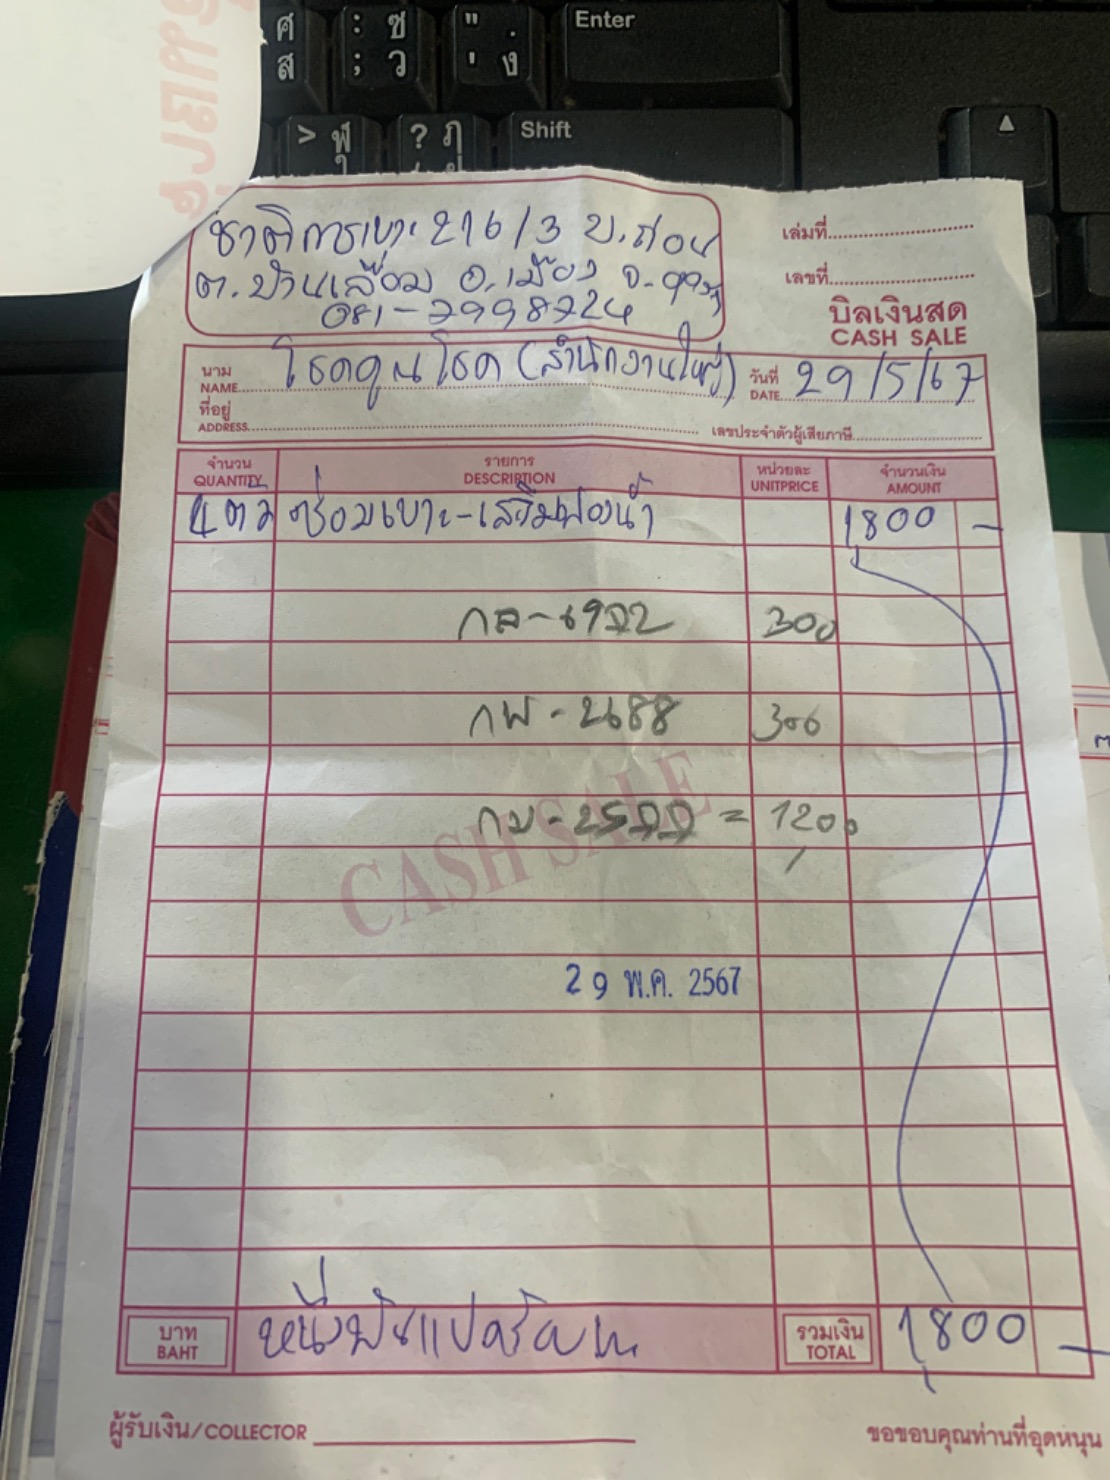 ศ : ซ " . Enter
ส ; ว ' ง
> ฬ ? ฦ Shift
ชาติการเบาะ 216/3 บ.
ต.บ้านเลื่อม อ.เมือง จ.
081-2998224
เล่มที่
เลขที่
บิลเงินสด
CASH SALE
นาม
NAME โชคคูนโชค (สำนักงานใหญ่) วันที่ 29/5/67
DATE
ที่อยู่
ADDRESS เลขประจำตัวผู้เสียภาษี
จำนวน รายการ หน่วยละ จำนวนเงิน
QUANTITY DESCRIPTION UNITPRICE AMOUNT
4 ตัว ซ่อมเบาะ-เสริมฟองน้ำ 1800 -
300
กพ-2688 300
= 1200
CASH SALE
29 พ.ค. 2567
บาท หนึ่งพันแปดร้อยบาท รวมเงิน 1800 -
BAHT TOTAL
ผู้รับเงิน/COLLECTOR
ขอขอบคุณท่านที่อุดหนุน